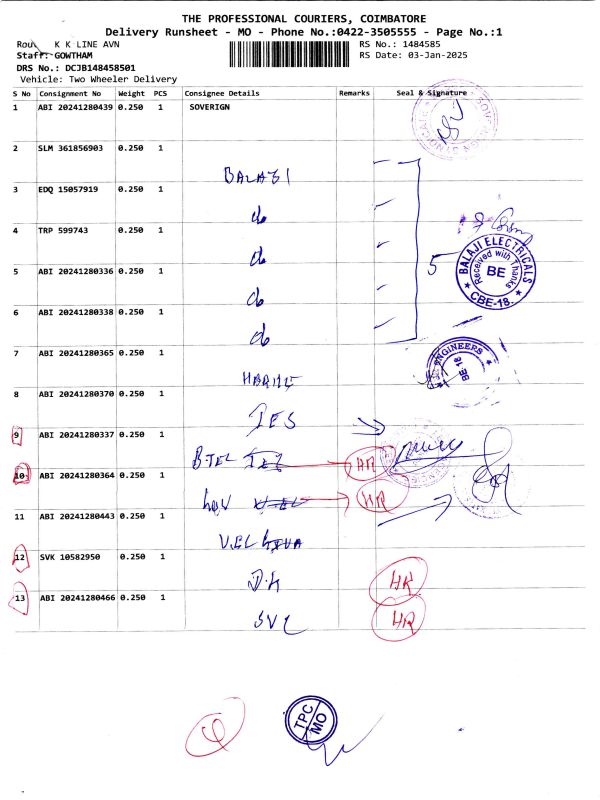 THE PROFESSIONAL COURIERS, COIMBATORE
Delivery Runsheet - MO - Phone No.:0422-3505555 - Page No.:1
K K LINE AVN
RS No.: 1484585
Staff: GOWTHAM
RS Date: 03-Jan-2025
DRS No.: DCJB148458501
Vehicle: Two Wheeler Delivery
S No Consignment No Weight PCS Consignee Details Remarks Seal & Signature
1 ABI 20241280439 0.250 1 SOVERIGN
2 SLM 361856903 0.250 1
BALAJI
3 EDQ 15057919 0.250 1
do
4 TRP 599743 0.250 1
do
5 ABI 20241280336 0.250 1
do
5
BALAJI ELECTRICALS
Received with Thanks
BE
CBE-18.
6 ABI 20241280338 0.250 1
do
7 ABI 20241280365 0.250 1
ENGINEERS
BE 18
8 ABI 20241280370 0.250 1
IES
9 ABI 20241280337 0.250 1
B-TEL
HR
10 ABI 20241280364 0.250 1
HR
11 ABI 20241280443 0.250 1
VEL
12 SVK 10582950 0.250 1
HR
13 ABI 20241280466 0.250 1
SVC
HR
TPC
MO